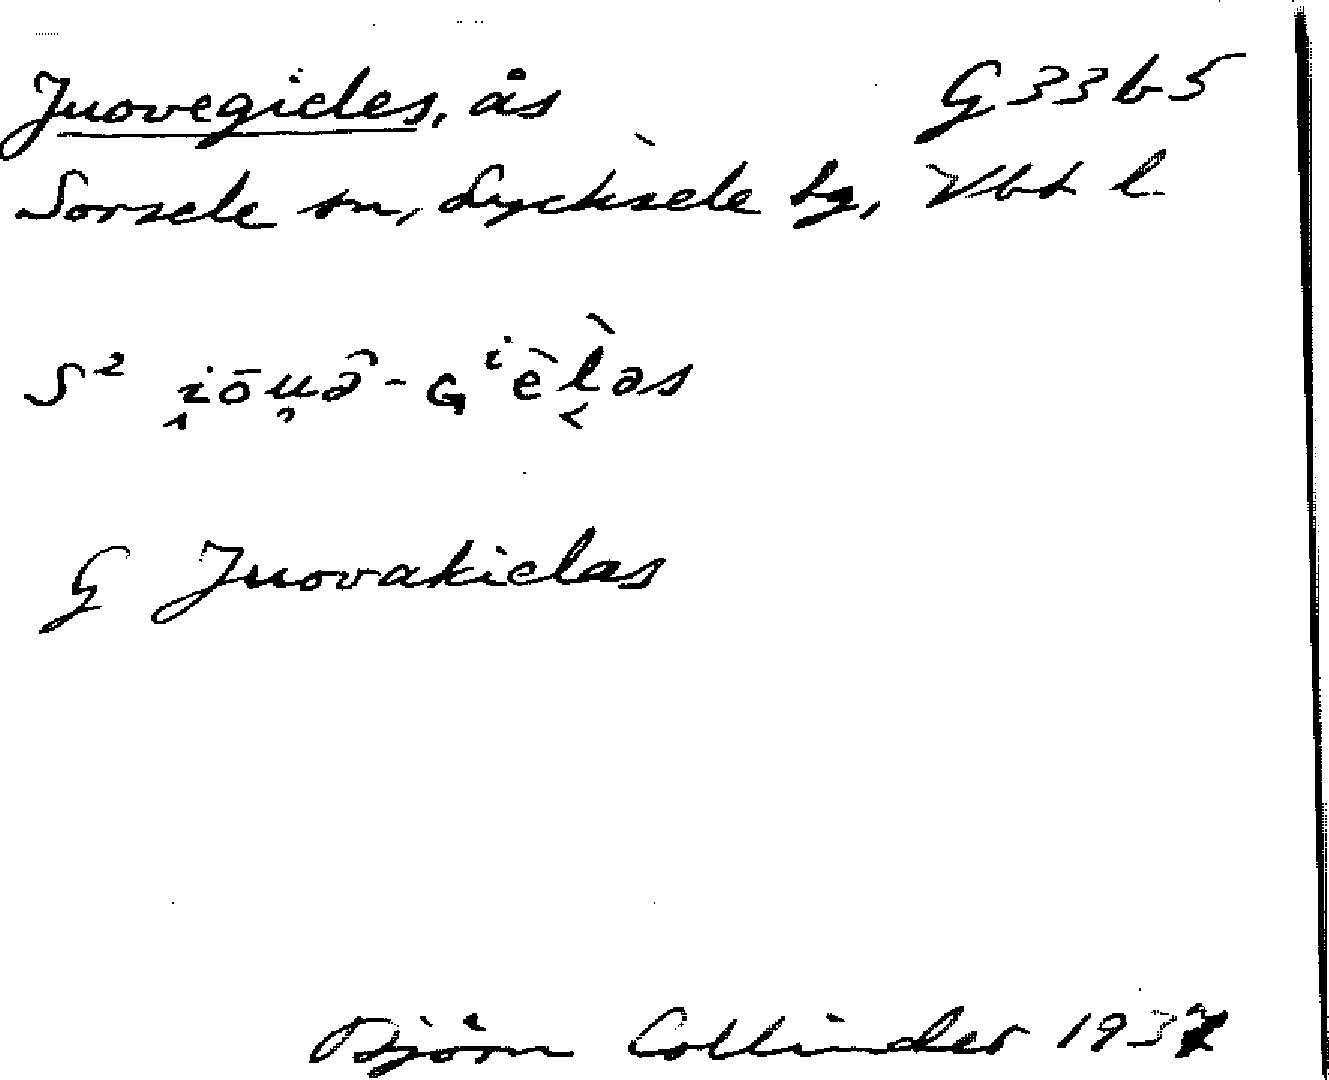 Juovegieles, ås G 33 b 5
Sorsele sn, Lycksele lg, Vbt l
S² i̭ōu̯ə̑-Gⁱēl̀əs
G Juovakielas
Björn Collinder 1937